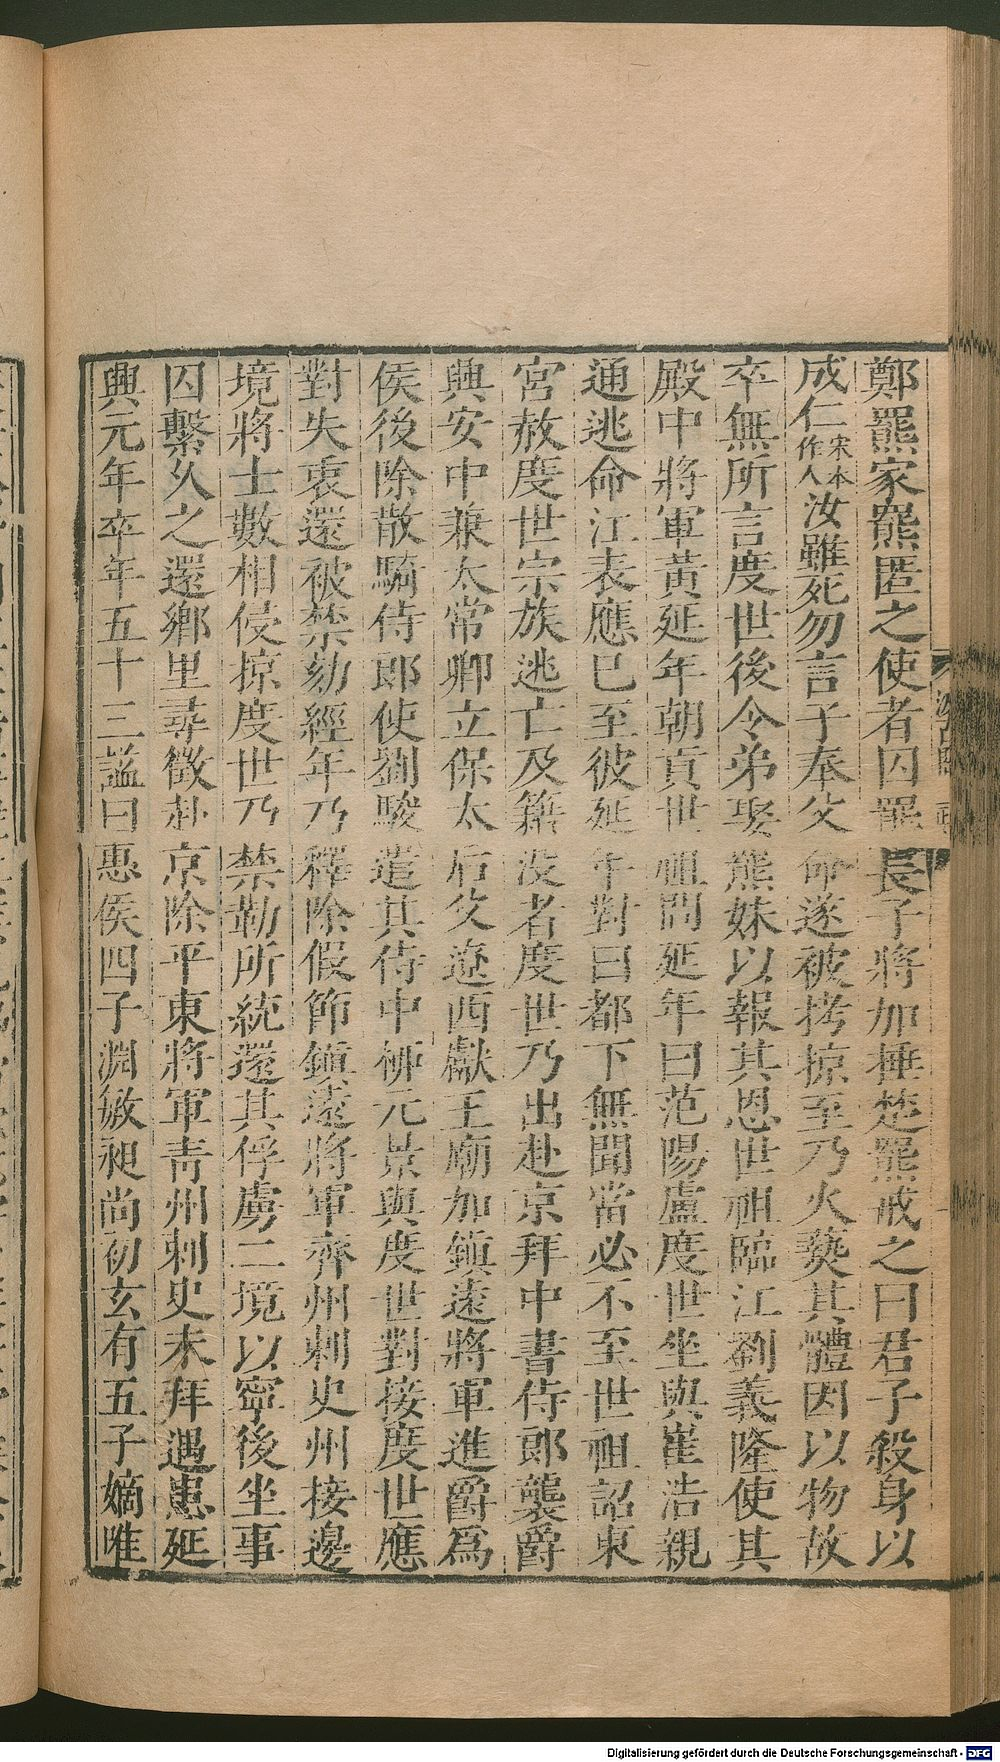 鄭羆家羆匿之使者囚羆長子將加捶楚羆戒之曰君子殺身以
成仁宋本作人汝雖死勿言子奉父命遂被拷掠至乃火爇其體因以物故
卒無所言度世後令弟娶羆妹以報其恩世祖臨江劉義隆使其
殿中將軍黃延年朝貢世祖問延年曰范陽盧度世坐與崔浩親
通逃命江表應已至彼延年對曰都下無聞當必不至世祖詔東
宮赦度世宗族逃亡及籍沒者度世乃出赴京拜中書侍郎襲爵
興安中兼太常卿立保太后父遼西獻王廟加鎮遠將軍進爵爲
侯後除散騎侍郎使劉駿遣其侍中柳元景與度世對接度世應
對失衷還被禁劾經年乃釋除假節鎮遠將軍齊州刺史州接邊
境將士數相侵掠度世乃禁勒所統還其俘虜二境以寧後坐事
囚繫久之還鄉里尋徵赴京除平東將軍青州刺史未拜遇患延
興元年卒年五十三諡曰惠侯四子淵敏昶尚初玄有五子嫡唯
Digitalisierung gefördert durch die Deutsche Forschungsgemeinschaft - DFG